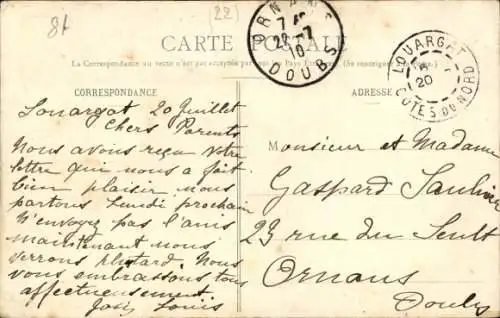 81
(22)
CARTE POSTALE
La Correspondance au verso n'est pas acceptée par tous les Pays
CORRESPONDANCE
ADRESSE
ORNANS
7
22 -7
10
DOUBS
LOUARGAT
20
COTES DU NORD
Louargat 20 Juillet
Chers Parents
Nous avons reçu votre
lettre qui nous a fait
bien plaisir nous
partons Lundi prochain
N'envoyez pas l'anis
maintenant nous
verrons plutard. Nous
vous embrassons tous
affectueusement
Louis
Monsieur et Madame
Gaspard
23 rue du
Ornans
Doubs